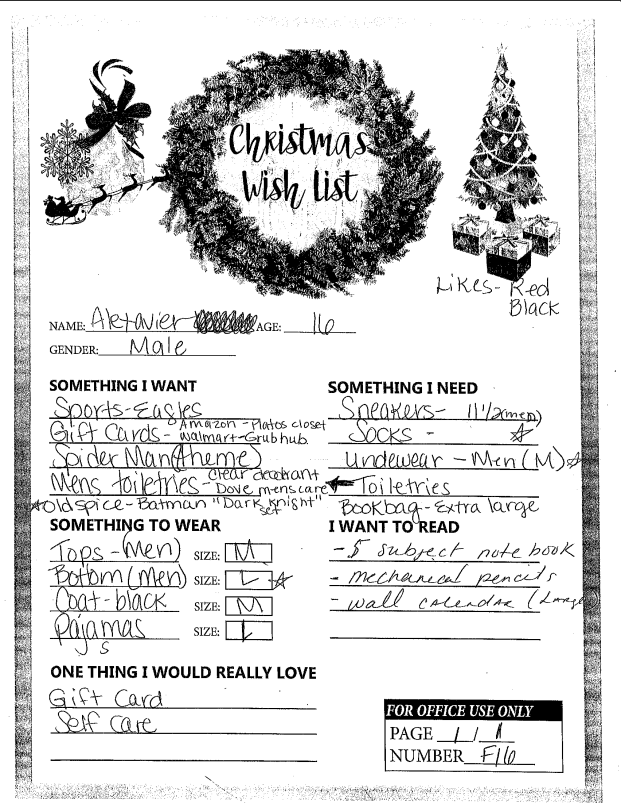 Christmas
Wish List
Likes- Red
Black
NAME: Aletavier AGE: 16
GENDER: Male
SOMETHING I WANT
Sports-Eagles
Gift Cards- Amazon - Platos closet
Walmart-Grubhub
Spider Man (theme)
Mens toiletries- clear deodrant
Dove menscare
☆Old spice- Batman "Dark Knight"
set
SOMETHING I NEED
Sneakers- 11 1/2 (men)
Socks - ☆
Undewear - Men (M) ☆
← Toiletries
Bookbag- Extra large
SOMETHING TO WEAR
Tops-(Men) SIZE: M
Bottom (men) SIZE: L ☆
Coat-black SIZE: M
Pajamas SIZE: L
s
I WANT TO READ
- 5 subject note book
- mechanical pencils
- wall calendar (Large)
ONE THING I WOULD REALLY LOVE
Gift Card
Self care
FOR OFFICE USE ONLY
PAGE 1 / 1
NUMBER F16